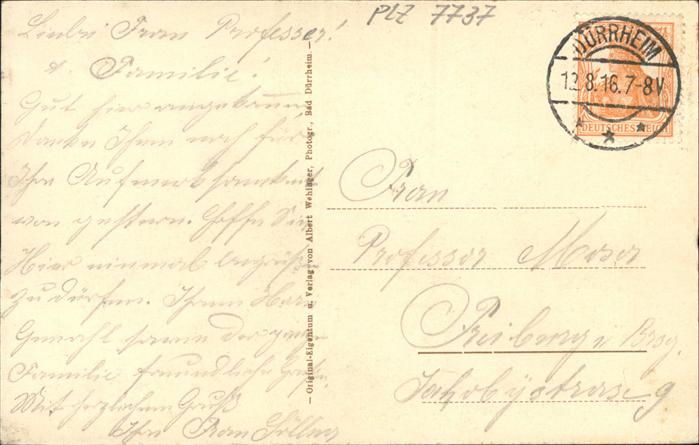 PLZ 7737
Liebe Frau Professor!
u. Familie!
Gut hier angekommen
danke Ihnen noch für
Ihre Aufmerksamkeit
von gestern. Hoffe Sie
Hier einmal begrüßen
zu dürfen. Ihrem Herrn
Gemahl sowie der ganzen
Familie freundliche Grüße.
Mit herzlichem Gruß
Ihre Frau
— Original-Eigentum u. Verlag von Albert Wehinger, Photogr., Bad Dürrheim. —
DÜRRHEIM
12.8.16.7-8V
DEUTSCHES REICH
Frau
Professor Moser
Freiburg i. Brsg.
Jakobystrasse 9